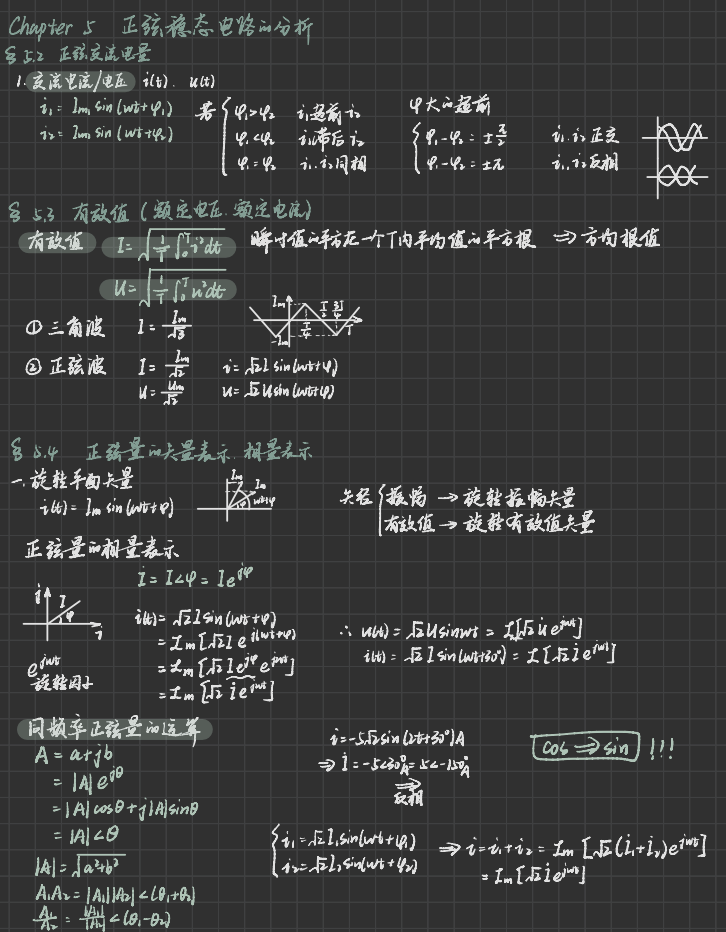 Chapter 5 正弦稳态电路的分析
§5.2 正弦交流电量
1. 交流电流/电压 i(t). u(t)
i₁ = Im₁ sin(wt+φ₁)
i₂ = Im₁ sin(wt+φ₂)
若 { φ₁>φ₂ i₁超前i₂
φ₁<φ₂ i₁滞后i₂
φ₁=φ₂ i₁.i₂同相
φ大的超前
{ φ₁-φ₂ = ±π/2 i₁.i₂正交
φ₁-φ₂ = ±π i₁.i₂反相
§5.3 有效值 (额定电压.额定电流)
有效值 I = √(1/T ∫₀ᵀ i²dt) 瞬时值的平方在一个T内平均值的平方根 ⇒ 方均根值
U = √(1/T ∫₀ᵀ u²dt)
① 三角波 I = Im/√3
Im -Im T/4 T/2 3T/4 T
② 正弦波 I = Im/√2 i = √2 I sin(wt+φ)
U = Um/√2 u = √2 U sin(wt+φ)
§5.4 正弦量的矢量表示.相量表示
一. 旋转平面矢量
i(t) = Im sin(wt+φ)
Im Im wt+φ φ
矢径 { 振幅 → 旋转振幅矢量
有效值 → 旋转有效值矢量
正弦量的相量表示
İ = I∠φ = Ie^{jφ}
j I φ 1
e^{jwt}
旋转因子
i(t) = √2 I sin(wt+φ)
= Im[√2 I e^{j(wt+φ)}]
= Im[√2 Ie^{jφ} e^{jwt}]
= Im[√2 İe^{jwt}]
∴ u(t) = √2 U sinwt = I[√2 U̇ e^{jwt}]
i(t) = √2 I sin(wt+30°) = I[√2 İ e^{jwt}]
同频率正弦量的运算
A = a+jb
= |A|e^{jθ}
= |A|cosθ + j|A|sinθ
= |A|∠θ
|A| = √(a²+b²)
A₁A₂ = |A₁||A₂|∠(θ₁+θ₂)
A₁/A₂ = |A₁|/|A₂| ∠(θ₁-θ₂)
i = -5√2 sin(2t+30°)A
⇒ İ = -5∠30°A = 5∠-150°A
⇒
反相
cos ⇒ sin !!!
{ i₁ = √2 I₁ sin(wt+φ₁)
i₂ = √2 I₂ sin(wt+φ₂)
⇒ i = i₁+i₂ = Im[√2(İ₁+İ₂)e^{jwt}]
= Im[√2 İe^{jwt}]